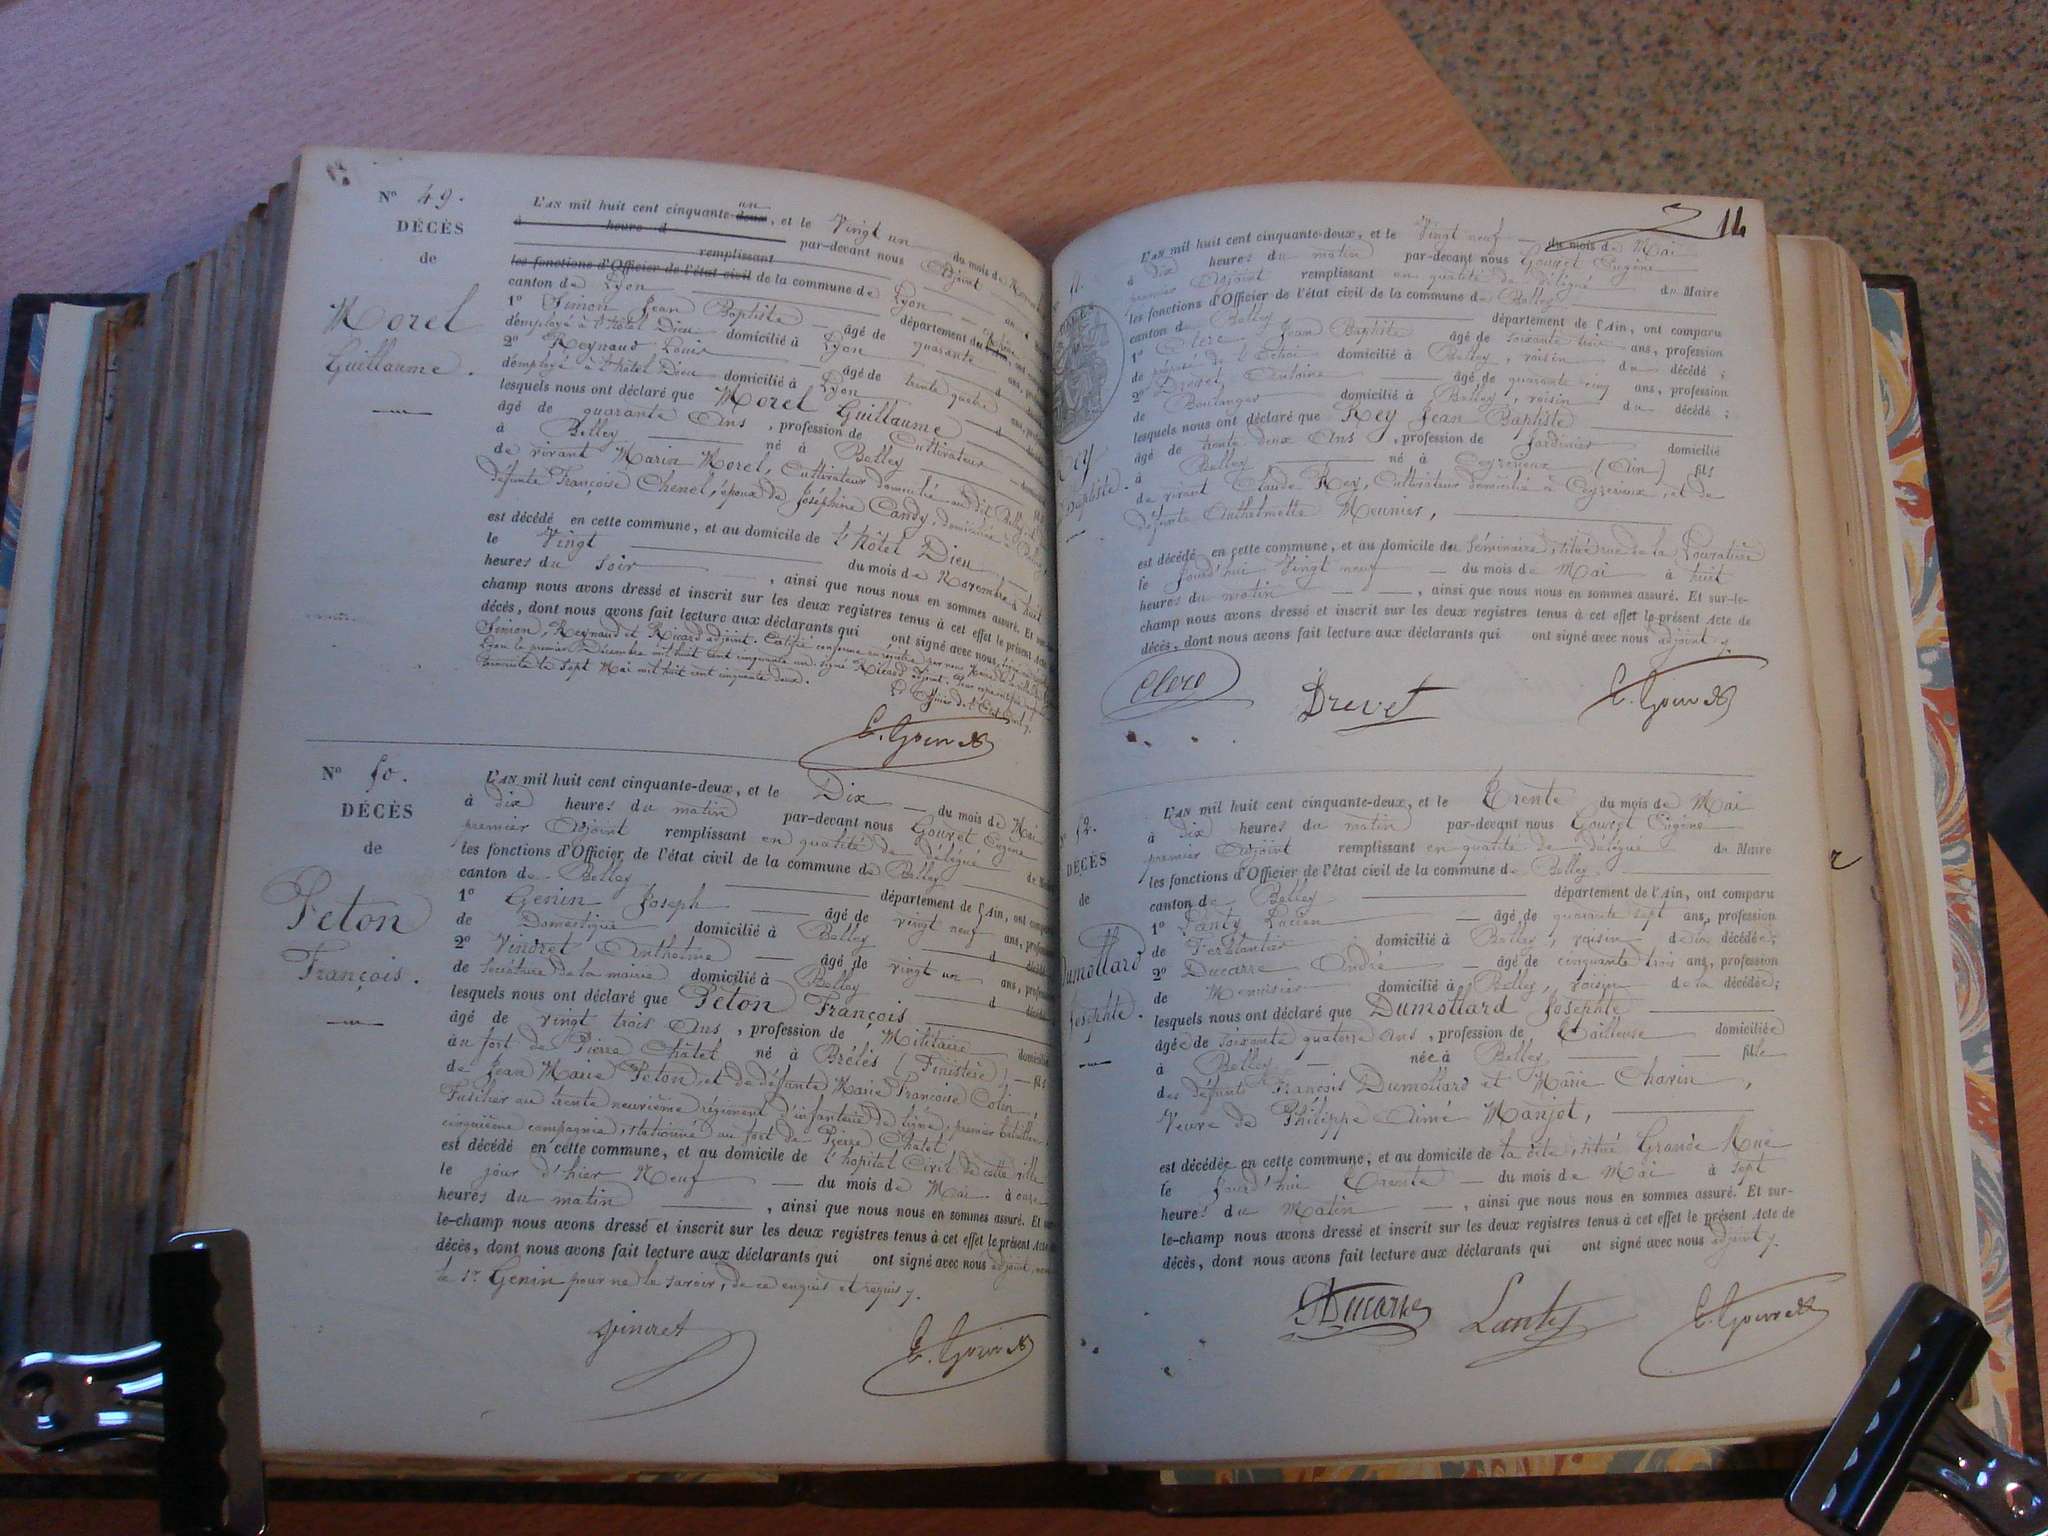 N° 49.
DÉCÈS
de
Morel
Guillaume.
L'AN mil huit cent cinquante-deux un, et le Vingt un du mois de
à heure d par-devant nous adjoint
remplissant
les fonctions d'Officier de l'état civil de la commune de Lyon
canton de Lyon département du
1° Simon Jean Baptiste âgé de quarante ans,
d'employé à l'hôtel Dieu domicilié à Lyon
2° Reynaud Louis âgé de trente quatre ans,
d'employé à l'hôtel Dieu domicilié à Lyon
lesquels nous ont déclaré que Morel Guillaume
âgé de quarante Ans, profession de Cultivateur
à Belley né à Belley
de vivant Marin Morel, Cultivateur domicilié audit Belley,
défunte Françoise Chenel, époux de Joséphine Candy, domiciliée à
est décédé en cette commune, et au domicile de l'hôtel Dieu
le Vingt du mois de Novembre à huit
heures du soir, ainsi que nous nous en sommes assuré. Et
champ nous avons dressé et inscrit sur les deux registres tenus à cet effet le présent Acte
décès, dont nous avons fait lecture aux déclarants qui ont signé avec nous
Simon, Reynaud et Ricard adjoint.
Lyon le premier Décembre mil huit cent cinquante un. signé Ricard adjoint.
le sept Mai mil huit cent cinquante deux.
L'Officier de l'Etat Civil
E. Gouvet
N° 50.
DÉCÈS
de
Peton
François.
L'AN mil huit cent cinquante-deux, et le Dix du mois de Mai
à dix heures du matin par-devant nous Gouvet Eugène
premier Adjoint remplissant en qualité de délégué du Maire
les fonctions d'Officier de l'état civil de la commune de Belley
canton de Belley département de l'Ain, ont comparu
1° Genin Joseph âgé de vingt neuf ans,
de Domestique domicilié à Belley
2° Vindret Anthelme âgé de vingt un ans,
de Secrétaire de la mairie domicilié à Belley d
lesquels nous ont déclaré que Peton François
âgé de vingt trois Ans, profession de Militaire domicilié
au fort de Pierre Châtel né à Brélès (Finistère) fils
de Jean Marie Peton, et de défunte Marie Françoise Colin,
Fusilier au trente neuvième régiment d'infanterie de ligne, premier bataillon,
cinquième compagnie, stationné au fort de Pierre Châtel
est décédé en cette commune, et au domicile de l'hopital Civil de cette ville
le jour d'hier Neuf du mois de Mai à onze
heures du matin, ainsi que nous nous en sommes assuré. Et sur-
le-champ nous avons dressé et inscrit sur les deux registres tenus à cet effet le présent Acte de
décès, dont nous avons fait lecture aux déclarants qui ont signé avec nous adjoint, non
le Sr. Genin pour ne le savoir, de ce enquis et requis.
Vindret
E. Gouvet
14
Rey
Baptiste.
L'AN mil huit cent cinquante-deux, et le Vingt neuf du mois de Mai
à dix heures du matin par-devant nous Gouvet Eugène
premier Adjoint remplissant en qualité de délégué du Maire
les fonctions d'Officier de l'état civil de la commune de Belley
canton de Belley département de l'Ain, ont comparu
1° Clerc Jean Baptiste âgé de soixante trois ans, profession
de préposé de l'Octroi domicilié à Belley, voisin du décédé;
2° Drevet, Antoine âgé de quarante cinq ans, profession
de Boulanger domicilié à Belley, voisin du décédé;
lesquels nous ont déclaré que Rey Jean Baptiste
âgé de trente deux Ans, profession de Jardinier domicilié
à Belley né à Ceyzérieux (Ain) fils
de vivant Claude Rey, Cultivateur domicilié à Ceyzerieux, et de
défunte Anthelmette Meunier,
est décédé en cette commune, et au domicile du séminaire, situé rue de la
le jourd'hui Vingt neuf du mois de Mai à huit
heures du matin, ainsi que nous nous en sommes assuré. Et sur-le-
champ nous avons dressé et inscrit sur les deux registres tenus à cet effet le présent Acte de
décès, dont nous avons fait lecture aux déclarants qui ont signé avec nous adjoint
Clerc
Drevet
E. Gouvet
52.
DÉCÈS
de
Dumollard
Josephte.
L'AN mil huit cent cinquante-deux, et le Trente du mois de Mai
à dix heures du matin par-devant nous Gouvet Eugène
premier Adjoint remplissant en qualité de délégué du Maire
les fonctions d'Officier de l'état civil de la commune de Belley
canton de Belley département de l'Ain, ont comparu
1° Lanty Lucien âgé de quarante sept ans, profession
de Ferblantier domicilié à Belley, voisin de la décédée;
2° Ducarre André âgé de cinquante trois ans, profession
de Menuisier domicilié à Belley, voisin de la décédée;
lesquels nous ont déclaré que Dumollard Josephte
âgée de soixante quatorze Ans, profession de Tailleuse domiciliée
à Belley née à Belley fille
des défunts François Dumollard et Marie Charin,
Veuve de Philippe Aimé Manjot,
est décédée en cette commune, et au domicile de la cité, situé Grande Rue
le jourd'hui Trente du mois de Mai à sept
heures du Matin, ainsi que nous nous en sommes assuré. Et sur-
le-champ nous avons dressé et inscrit sur les deux registres tenus à cet effet le présent Acte de
décès, dont nous avons fait lecture aux déclarants qui ont signé avec nous adjoint
Ducarre
Lanty
E. Gouvet